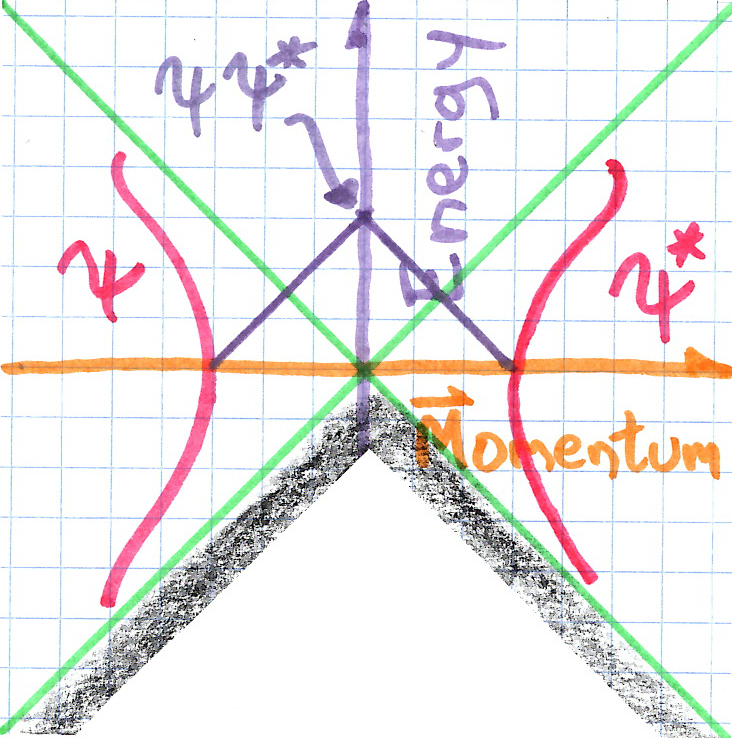 ψψ*
Energy
ψ
ψ*
Momentum